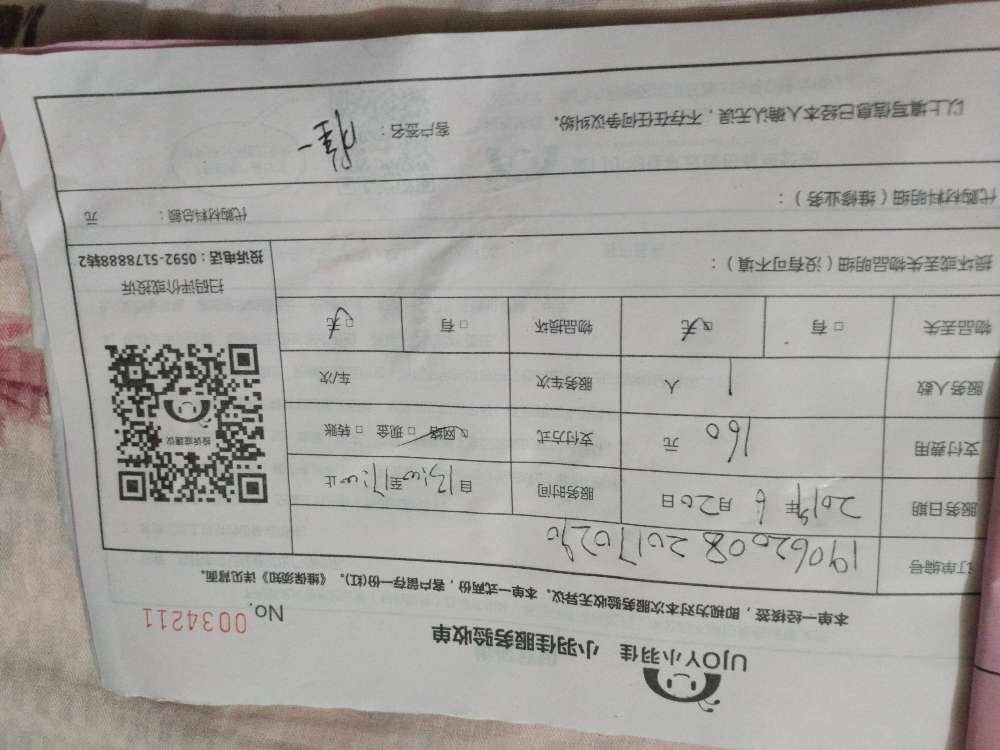 UJOY小羽佳 小羽佳服务验收单
No. 0034211
本单一经核签，即视为对本次服务验收无异议。本单一式两份，客户留存一份(红)。《维保须知》详见背面。
订单编号 190620082017020
服务日期 2019年 6月20日 服务时间 自13:00至17:00止
支付费用 160 元 支付方式 ☑网络 □现金 □转账
服务人数 1 人 服务车次 车/次
物品丢失 □有 ☑无 物品损坏 □有 ☑无
投诉或建议
扫码评价或投诉
投诉电话：0592-5178888转2
损坏或丢失物品明细（没有可不填）：
代购材料明细（维修业务）： 代购材料总额： 元
以上填写信息已经本人确认无误，不存在任何争议纠纷。 客户签名：